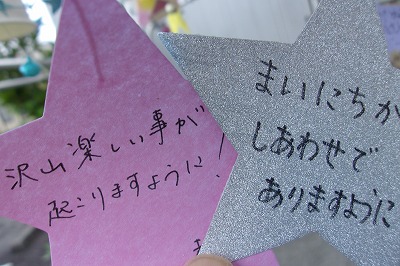 沢山楽しい事が
起こりますように!
まいにちが
しあわせで
ありますように